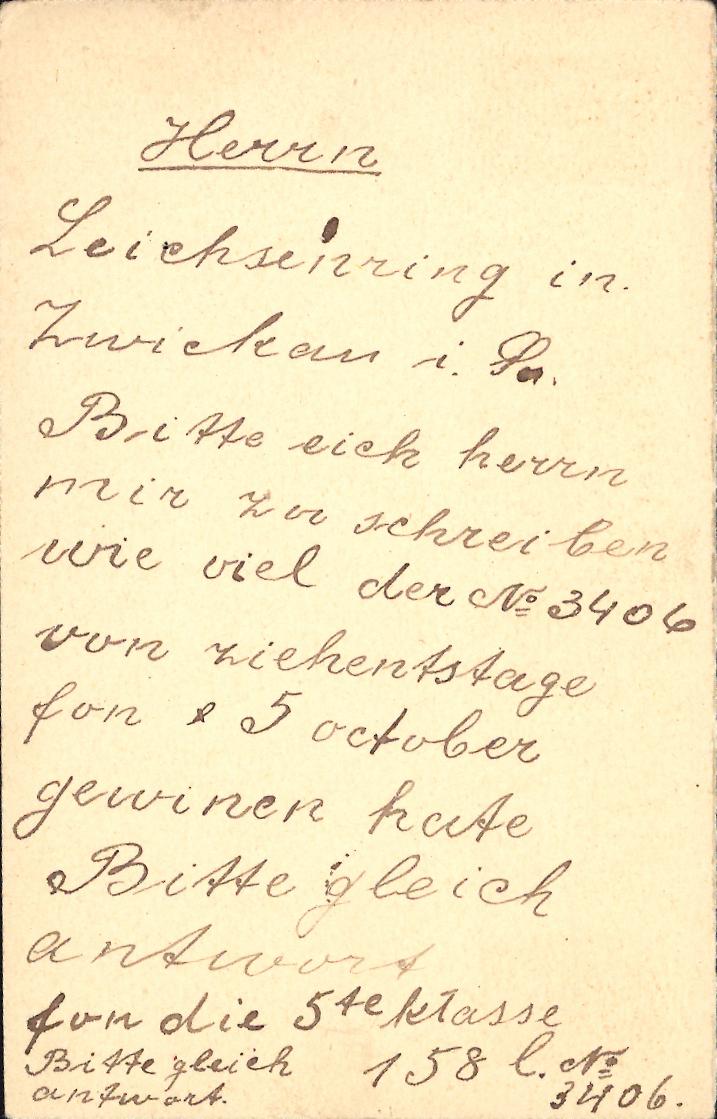 Herrn
Leichsenring in.
Zwickau i. Sa.
Bitte eich herrn
mir zu schreiben
wie viel der № 3406
von ziehentstage
fon 5 october
gewinen hate
Bitte gleich
antwort
fon die 5te klasse
Bitte gleich 158 l. №
antwort. 3406.